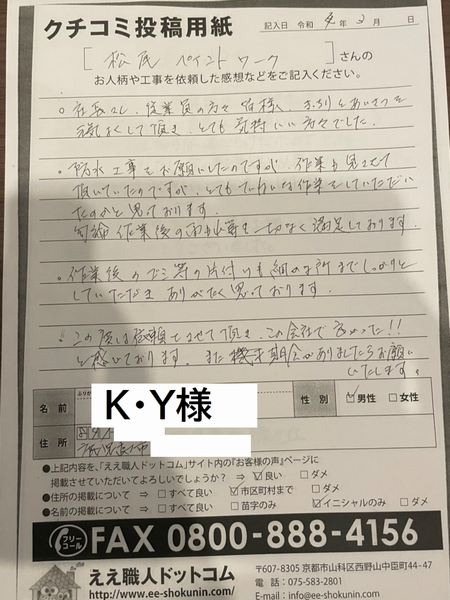 クチコミ投稿用紙
記入日 令和 4年 3月 日
[松尾 ペイントワーク]さんの
お人柄や工事を依頼した感想などをご記入ください。
○ 社長さん、従業員の方々 皆様、きっちりとあいさつを
気持ちよくして頂き、とても気持いい方々でした。
・防水工事をお願いしたのですが、作業も見させて
頂いていたのですが、とてもていねいな作業をしていただい
たのかと思っております。
勿論 作業後の雨も心配を一切なく満足しております。
・作業後のゴミ等の片付けも細かな所までしっかりと
していただき ありがたく思っております。
・この度は依頼をさせて頂き、この会社で良かった!!
と感じております。また機会がありましたらお願い
いたします。
ふりが
名前
K・Y様
性別
男性 □女性
住所
●上記内容を、「ええ職人ドットコム」サイト内の『お客様の声』ページに
掲載させていただいてよろしいでしょうか? ⇒ 良い □ダメ
●住所の掲載について ⇒ □すべて良い 市区町村まで □ダメ
●名前の掲載について ⇒ □すべて良い □苗字のみ イニシャルのみ □ダメ
フリーコール FAX 0800-888-4156
ええ職人ドットコム
http://www.ee-shokunin.com/
〒607-8305 京都市山科区西野山中臣町44-47
電話:075-583-2801
E-mail:info@ee-shokunin.com